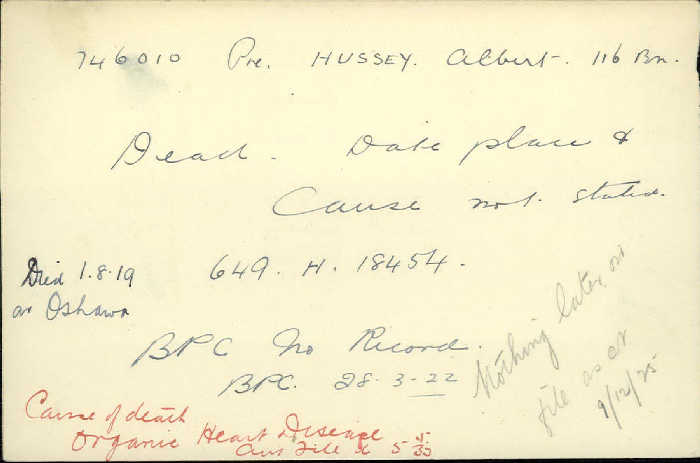 746010 Pte. HUSSEY. Albert. 116 Bn.
Dead. Date place &
Cause not stated.
649. H. 18454.
Died 1.8.19
at Oshawa
BPC No Record.
BPC. 28-3-22
Nothing later on
file as at
9/12/25
Cause of death
Organic Heart Disease
File